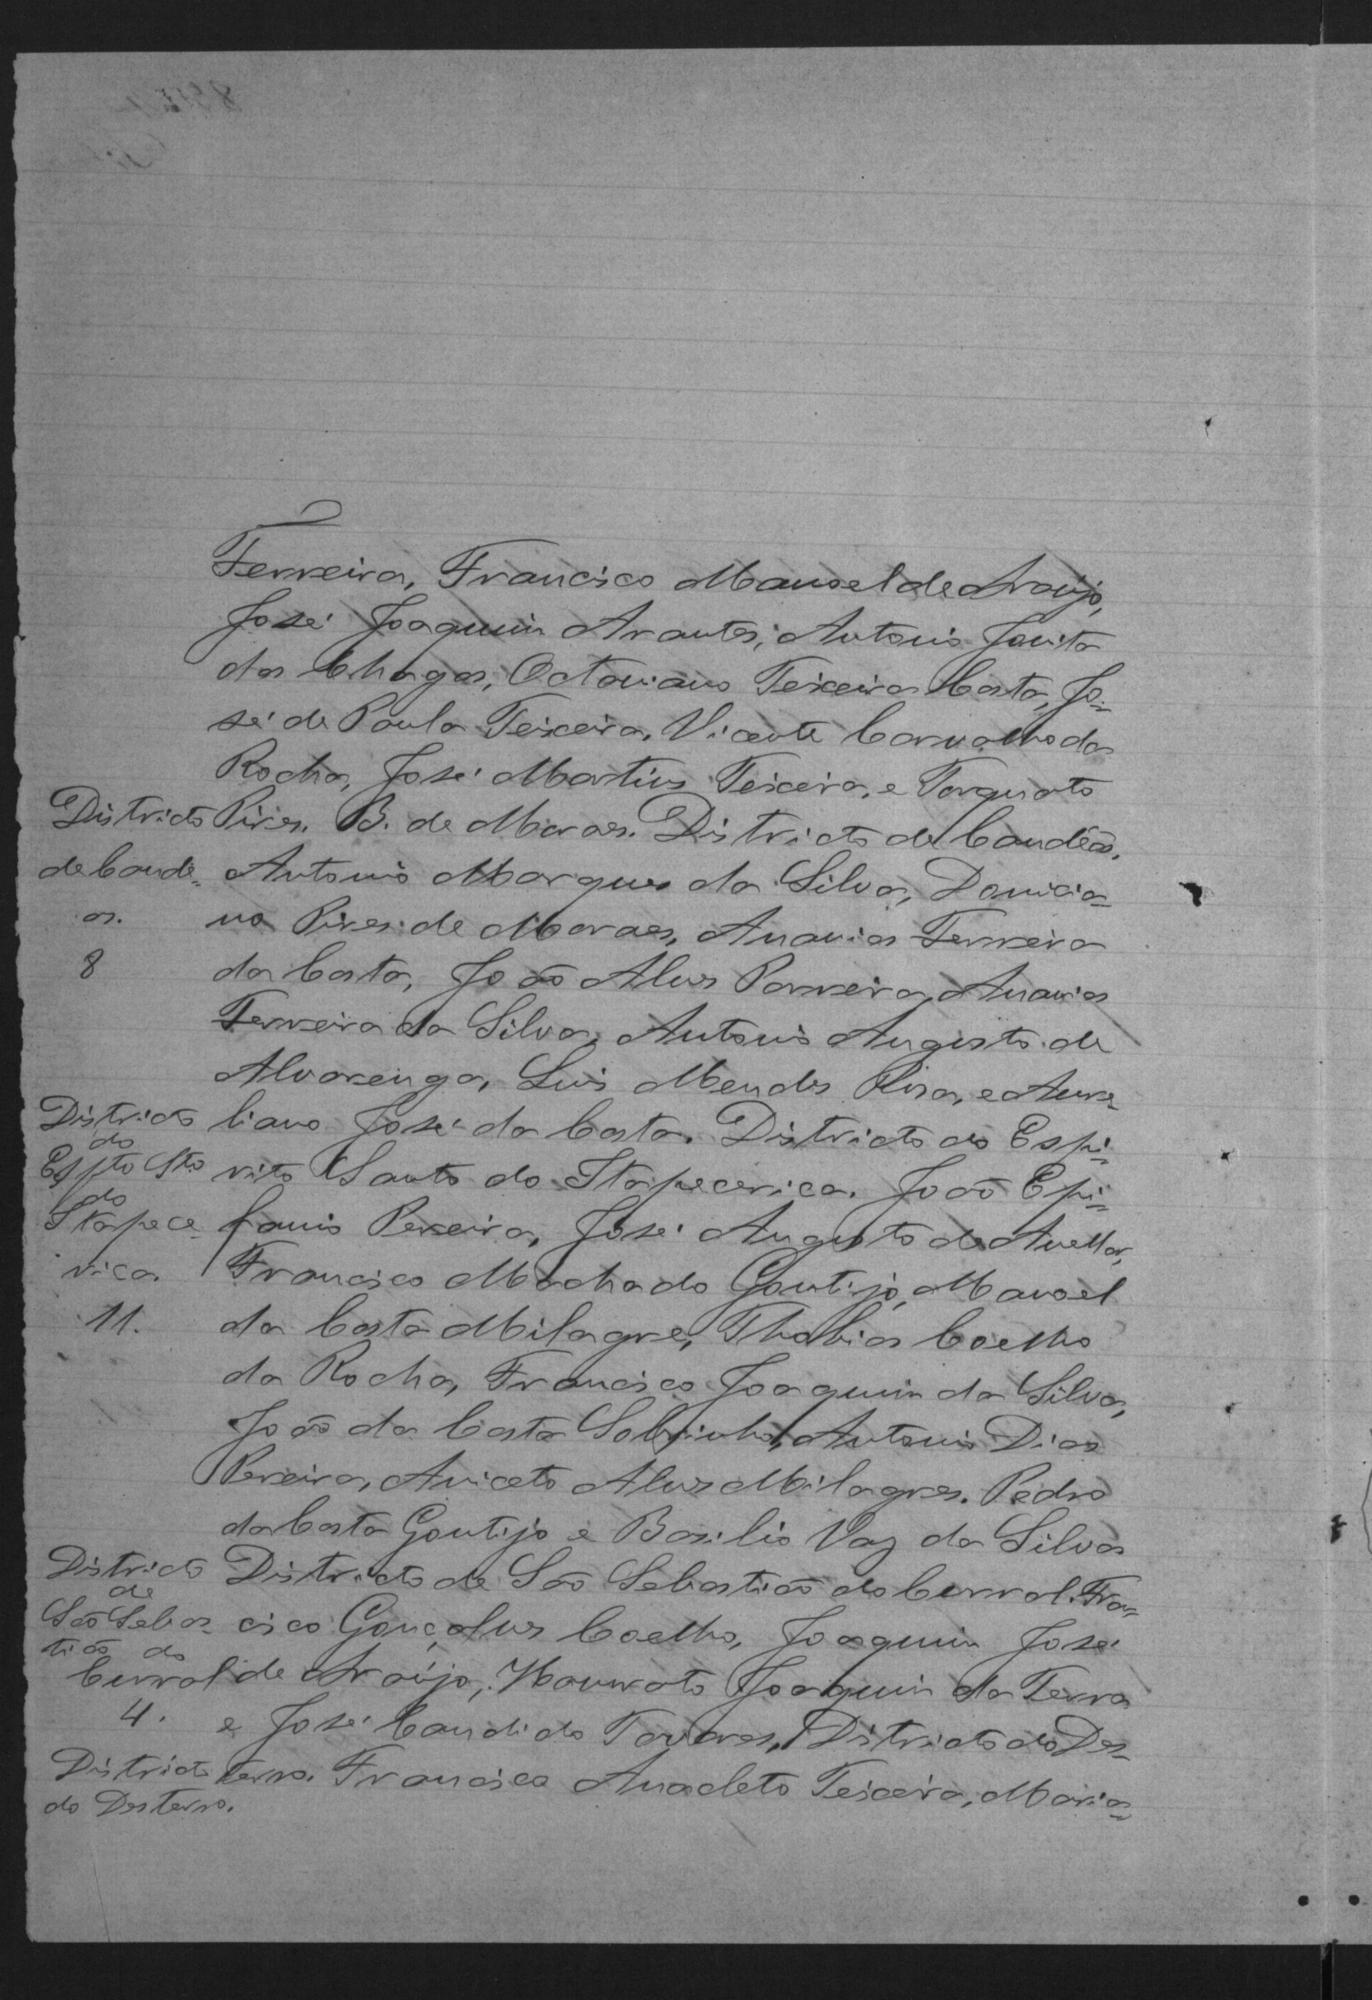 Ferreira, Francisco Manoel de Araujo,
José Joaquim Arantes, Antonio Jovita
das Chagas, Octaviano Teixeira Costa, Jo-
sé de Paula Teixeira, Vicente Carvalho da
Rocha, José Martins Teixeira, e Torquato
Districto Pires. B. de Moraes. Districto de Candêas.
de Cande- Antonio Marques da Silva, Domicia-
as. no Pires de Moraes, Ananias Ferreira
8 da Costa, João Alves Parreira, Ananias
Ferreira da Silva, Antonio Augusto de
Alvarenga, Luis Mendes Rosa, e Aure-
Districto liano José da Costa. Districto do Espi-
do
Espto Sto rito Santo do Itapecerica. João Epi-
do
Itapece- fanio Pereira, José Augusto de Avellar,
rica. Francisco Machado Gontijo, Manoel
11. da Costa Milagre, Thobias Coelho
da Rocha, Francisco Joaquim da Silva,
João da Costa Sobrinho, Antonio Dias
Pereira, Aniceto Alves Milagres. Pedro
da Costa Gontijo e Basilio Vaz da Silva
Districto Districto de São Sebastião do Curral. Fran-
de
São Sebas- cisco Gonçalves Coelho, Joaquim José
tião do
Curral de Araujo, Honorato Joaquim da Terra
4. e José Candido Tavares, Districto do Des-
Districto terro. Francisco Anacleto Teixeira, Maria-
do Desterro.